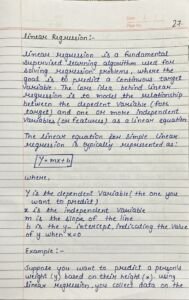 27
Linear Regression:-
Linear regression is a fundamental
supervised learning algorithm used for
solving regression problems, where the
goal is to predict a continuous target
variable. The core idea behind linear
regression is to model the relationship
between the dependent variable (
target) and one or more independent
variables (or features) as a linear equation.
The linear equation for simple linear
regression is typically represented as:
Y = mx + b
where,
Y is the dependent variable (the one you
want to predict)
x is the independent variable
m is the slope of the line
b is the y-intercept, indicating the value
of y when x=0
Example:-
Suppose you want to predict a person's
weight (y) based on their height (x). using
linear regression, you collect data on the